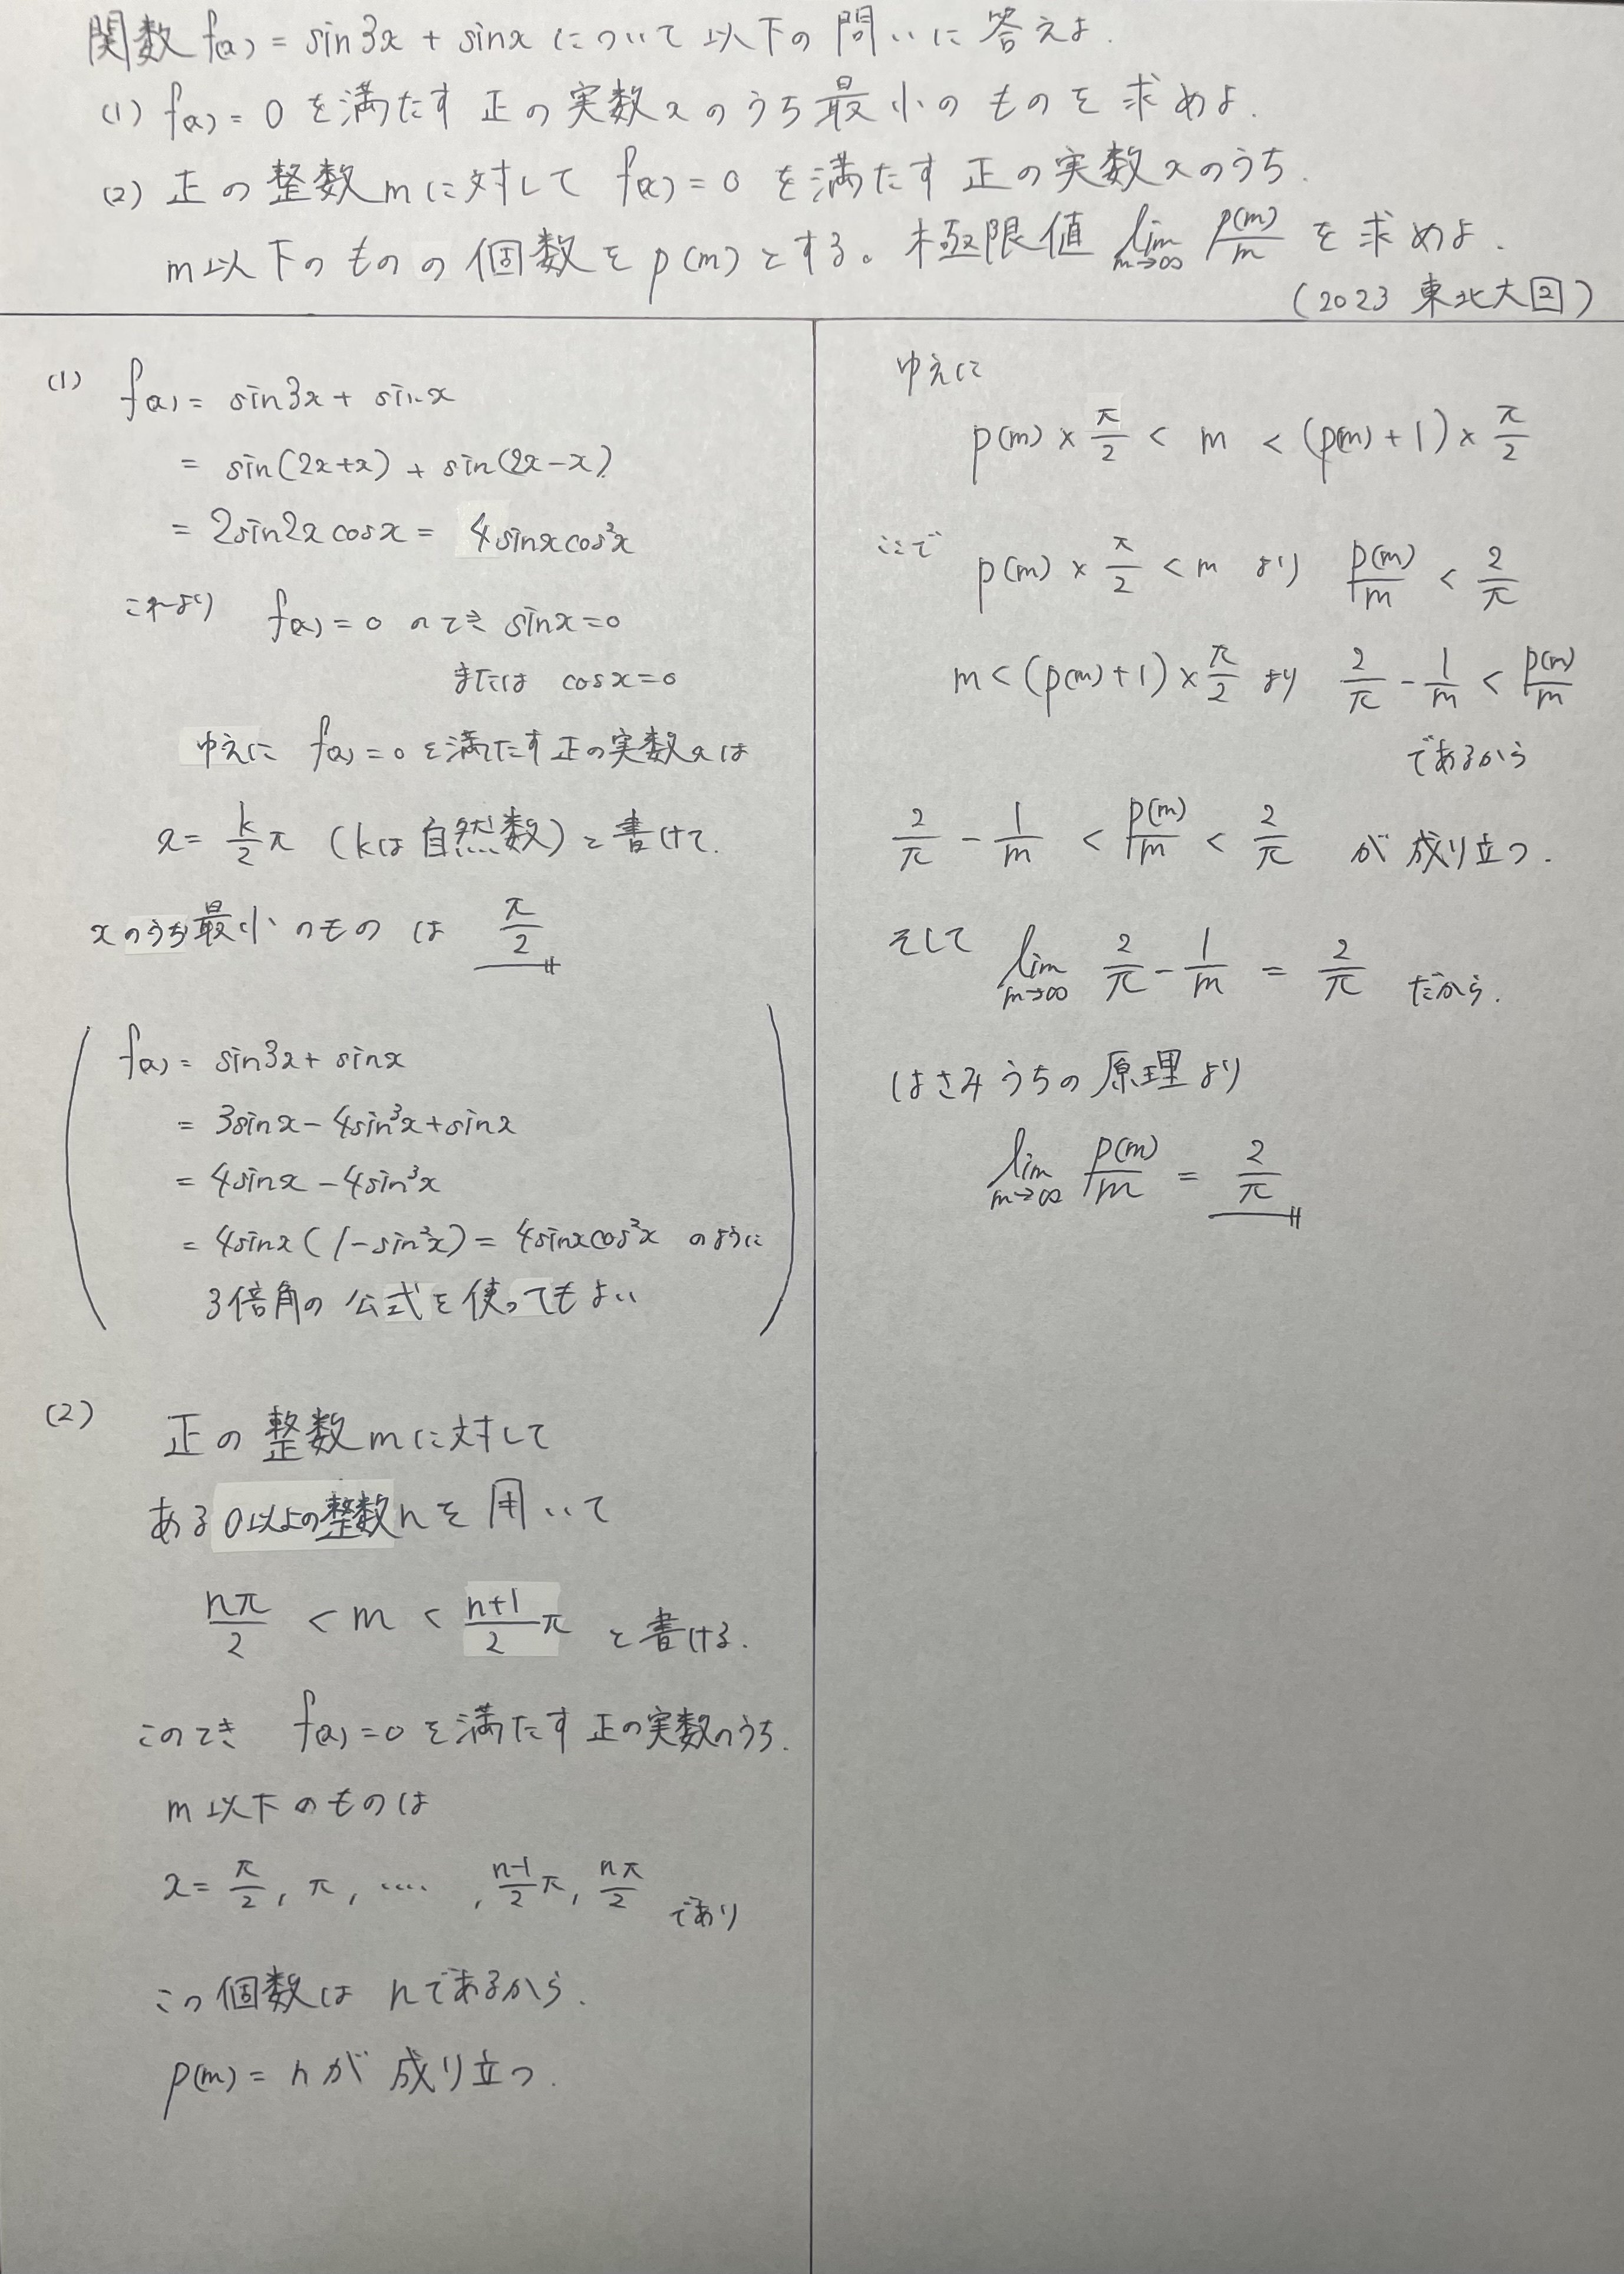 関数 f(x) = sin3x + sinx について以下の問いに答えよ.
(1) f(x) = 0 を満たす正の実数xのうち最小のものを求めよ.
(2) 正の整数mに対して f(x) = 0 を満たす正の実数xのうち.
m以下のものの個数を p(m) とする。極限値 lim_{m→∞} p(m)/m を求めよ.
(2023 東北大 理 2)
(1) f(x) = sin3x + sinx
= sin(2x+x) + sin(2x-x)
= 2sin2x cosx = 4sinxcos²x
これより f(x) = 0 のとき sinx=0
または cosx=0
ゆえに f(x) = 0 を満たす正の実数xは
x = k/2 π (kは自然数) と書けて.
xのうち最小のものは π/2
f(x) = sin3x + sinx
= 3sinx - 4sin³x + sinx
= 4sinx - 4sin³x
= 4sinx(1-sin²x) = 4sinxcos²x のように
3倍角の公式を使ってもよい
(2) 正の整数mに対して
ある0以上の整数nを用いて
nπ/2 < m < n+1/2 π と書ける.
このとき f(x) = 0 を満たす正の実数のうち.
m以下のものは
x = π/2, π, ‥‥, n-1/2 π, nπ/2 であり
この個数は n であるから.
p(m) = n が成り立つ.
ゆえに
p(m) × π/2 < m < (p(m)+1) × π/2
ここで p(m) × π/2 < m より p(m)/m < 2/π
m < (p(m)+1) × π/2 より 2/π - 1/m < p(m)/m
であるから
2/π - 1/m < p(m)/m < 2/π が成り立つ.
そして lim_{m→∞} 2/π - 1/m = 2/π だから.
はさみうちの原理より
lim_{m→∞} p(m)/m = 2/π